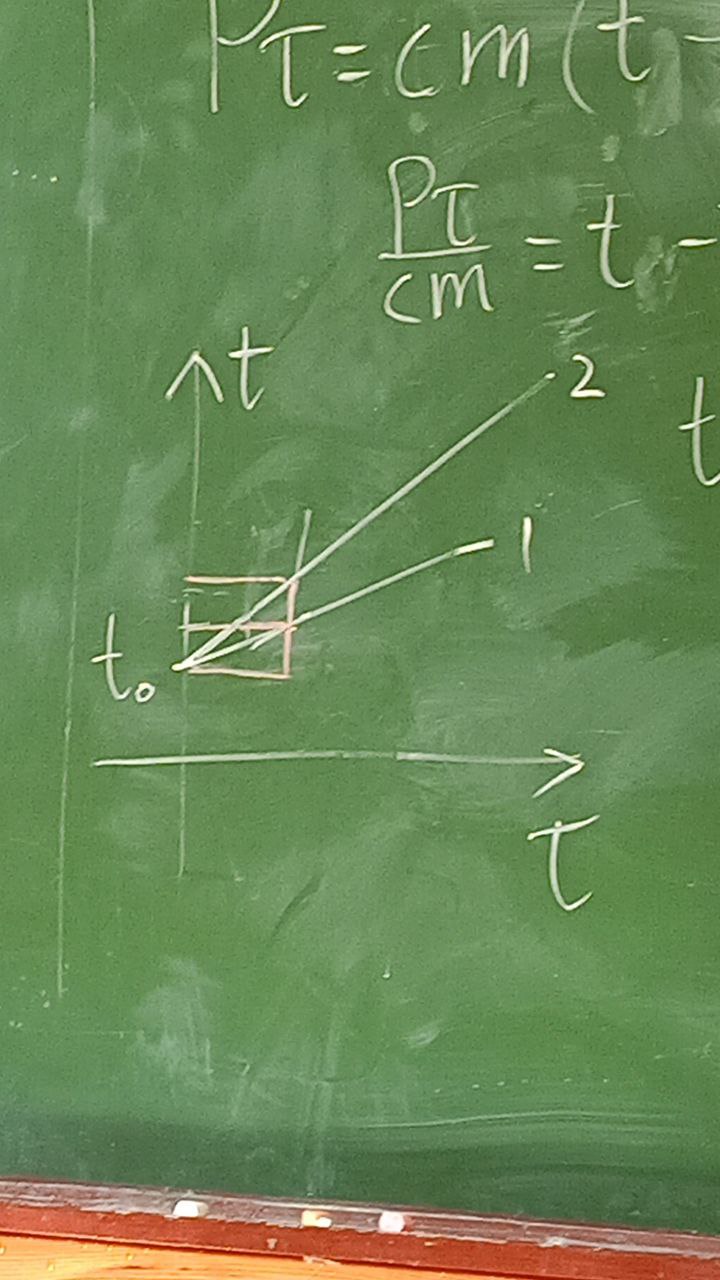 Pτ = cm(t -
Pτ/cm = t -
t
2
t
1
t₀
τ